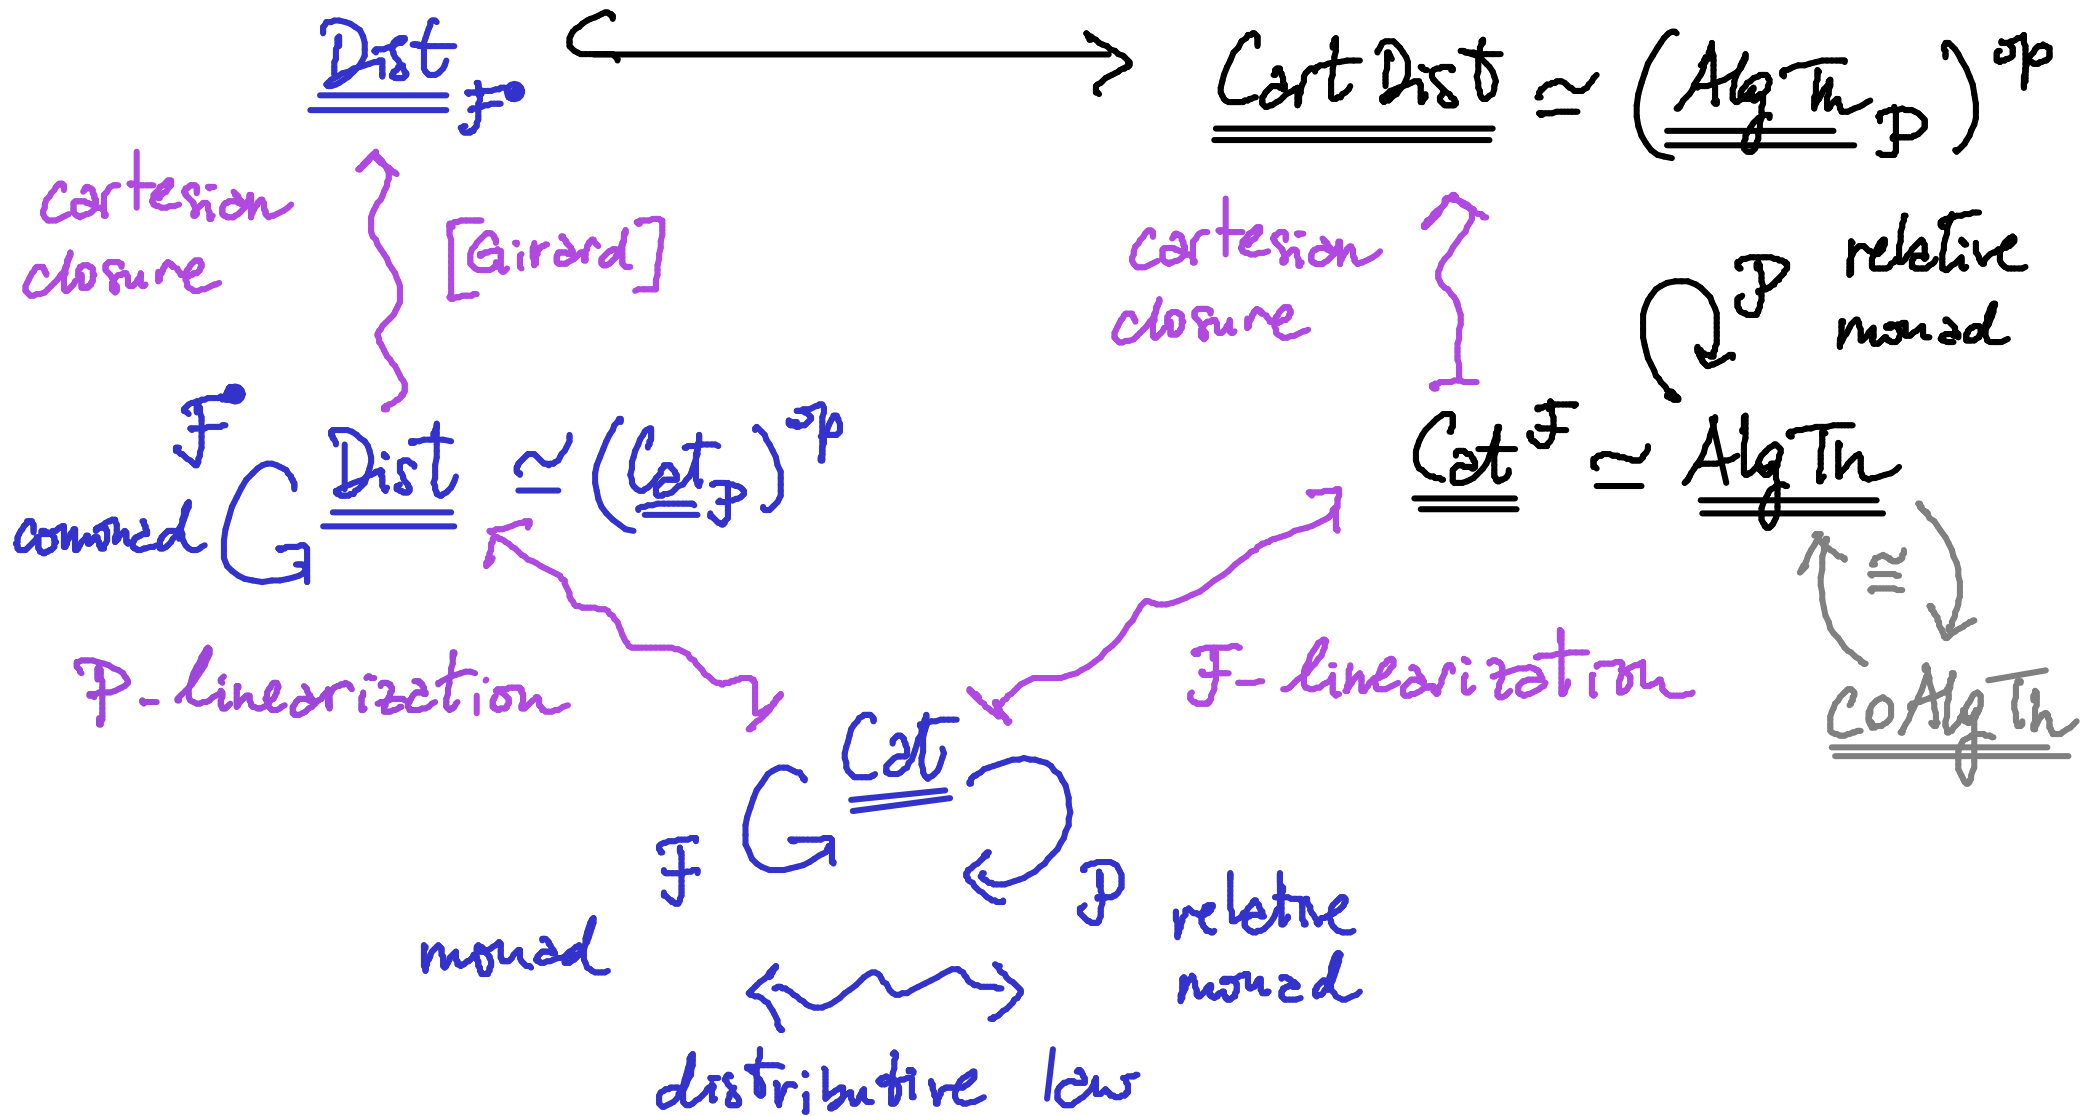 Dist_F• ↪ CartDist ≃ (AlgTh_P)^op
cartesian
closure
[Girard]
cartesian
closure
P relative
monad
F•
Dist ≃ (Cat_P)^op
comonad
Cat^F ≃ AlgTh
≅
P-linearization
F-linearization
coAlgTh
Cat
F
monad
P
relative
monad
distributive law